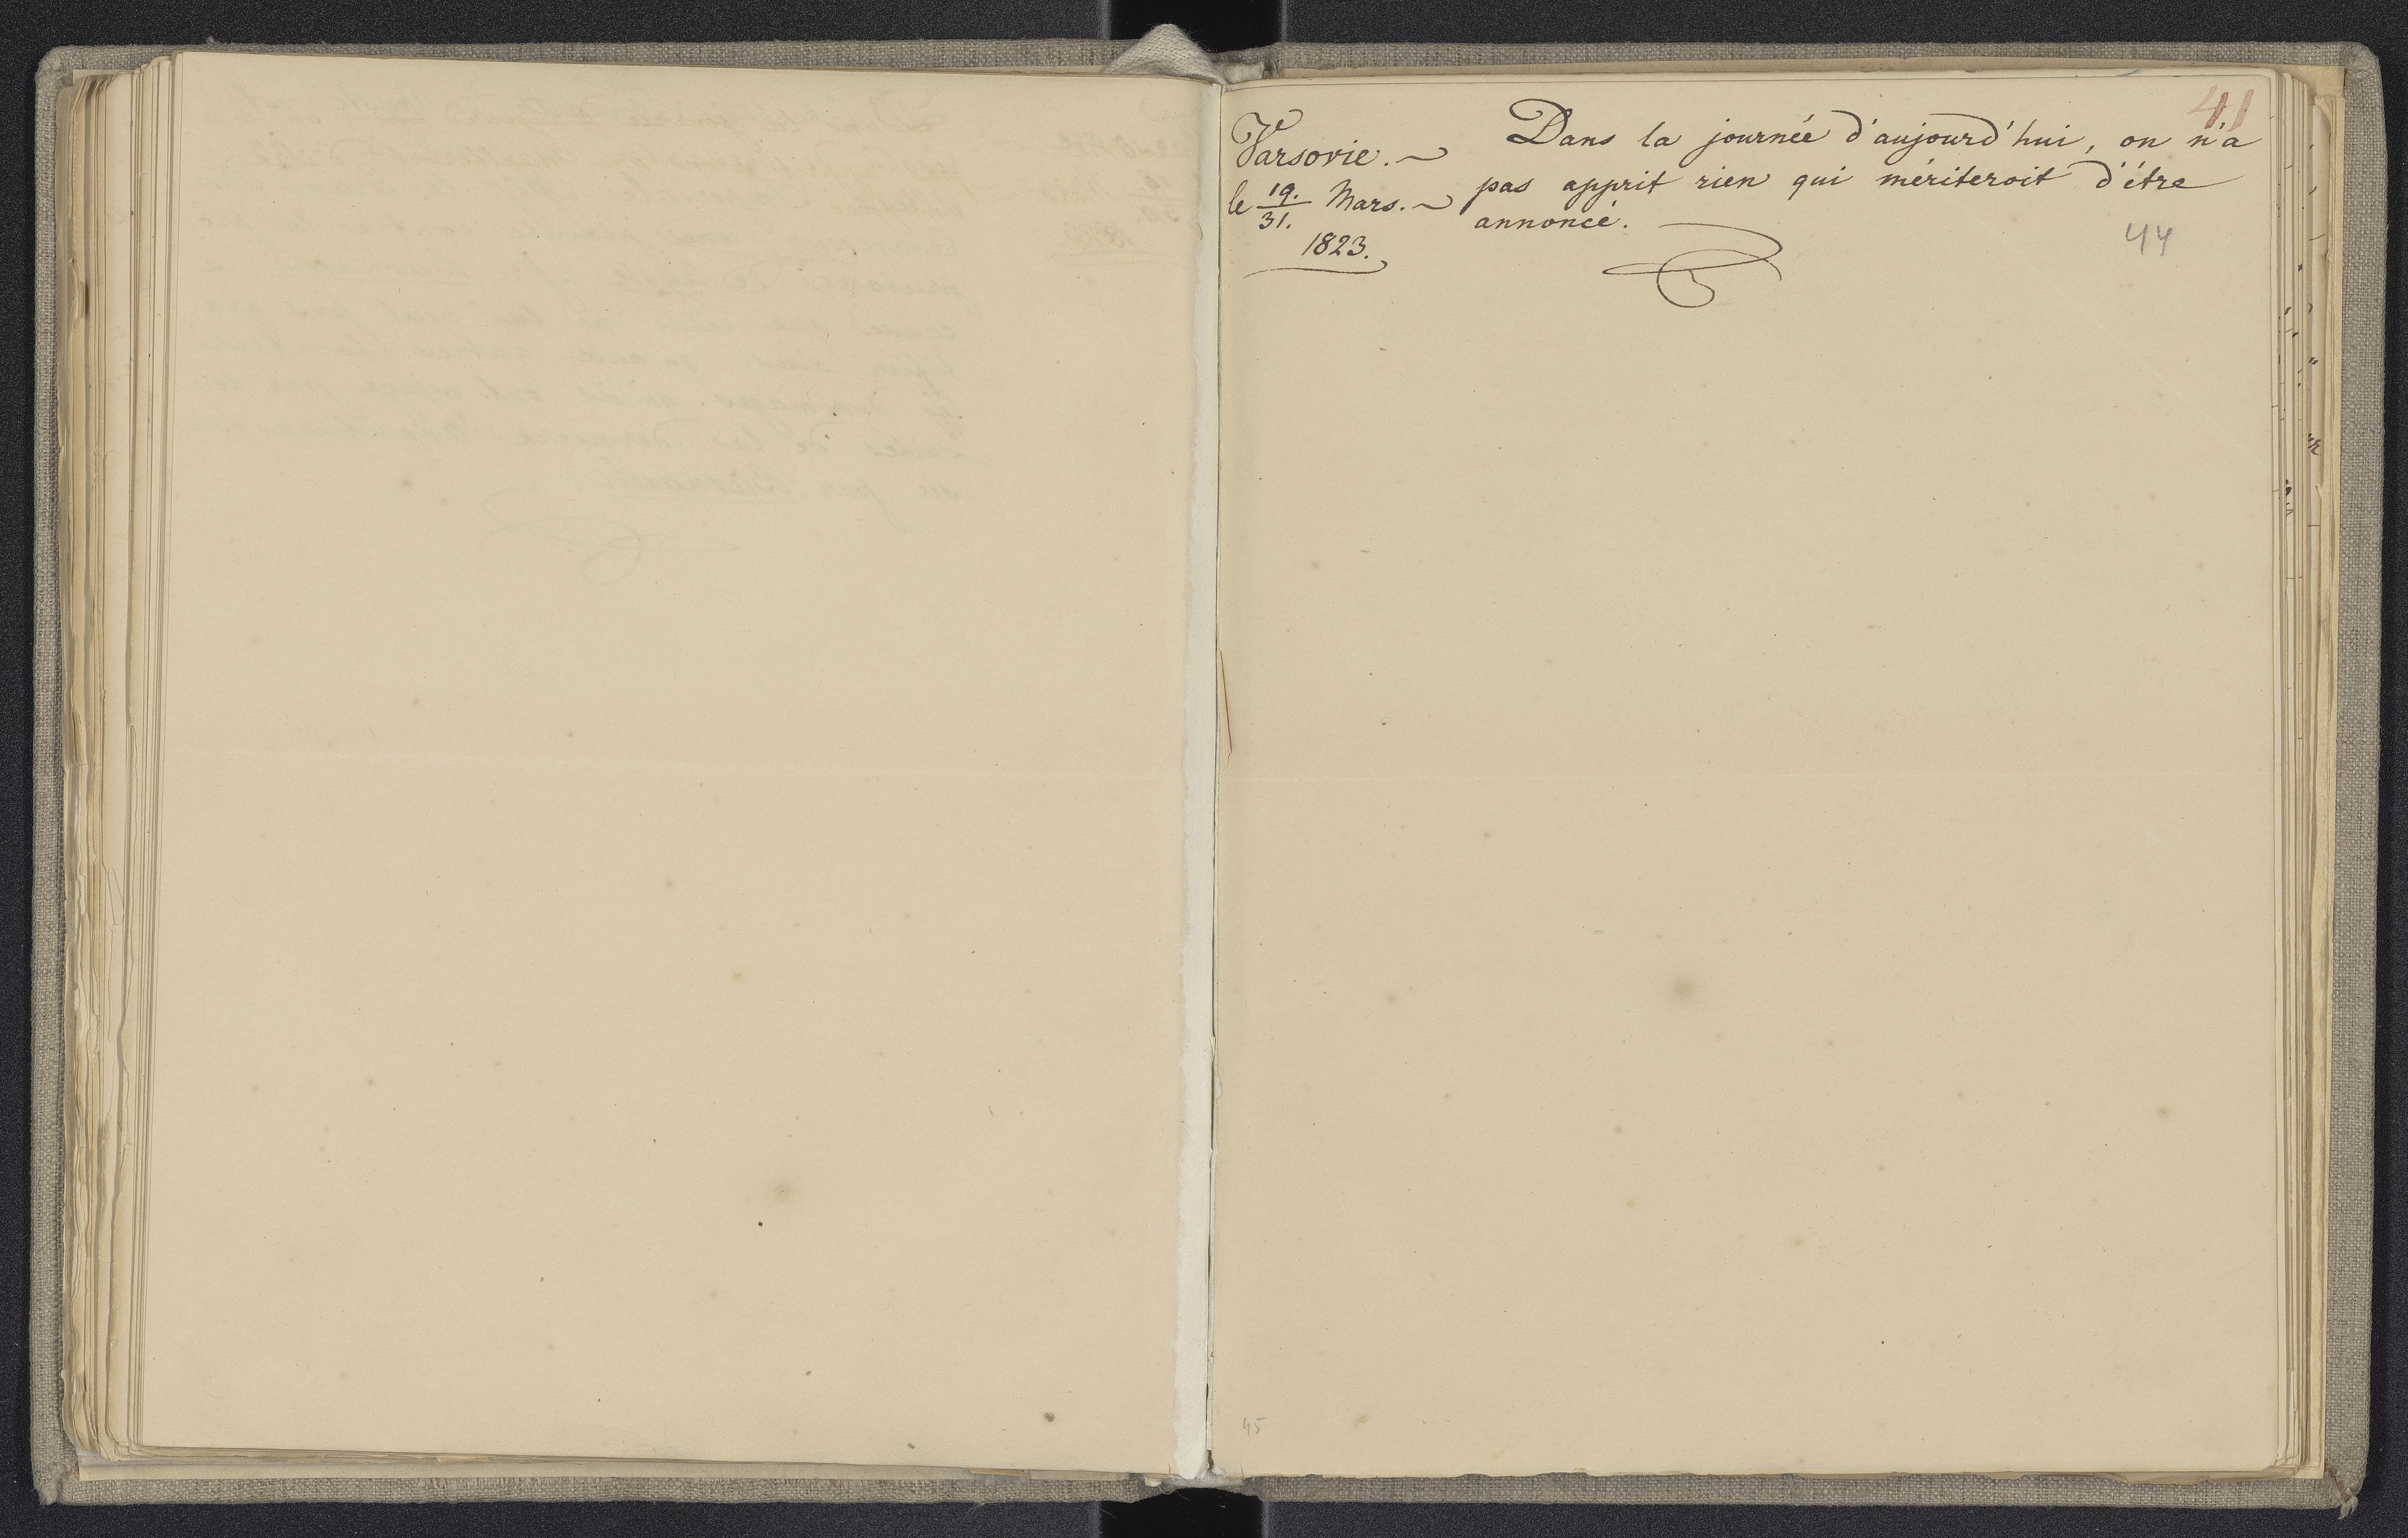 41
Varsovie.
le 19./31. Mars.
1823.
Dans la journée d'aujourd'hui, on n'a
pas apprit rien qui mériteroit d'étre
annoncé.
44
45